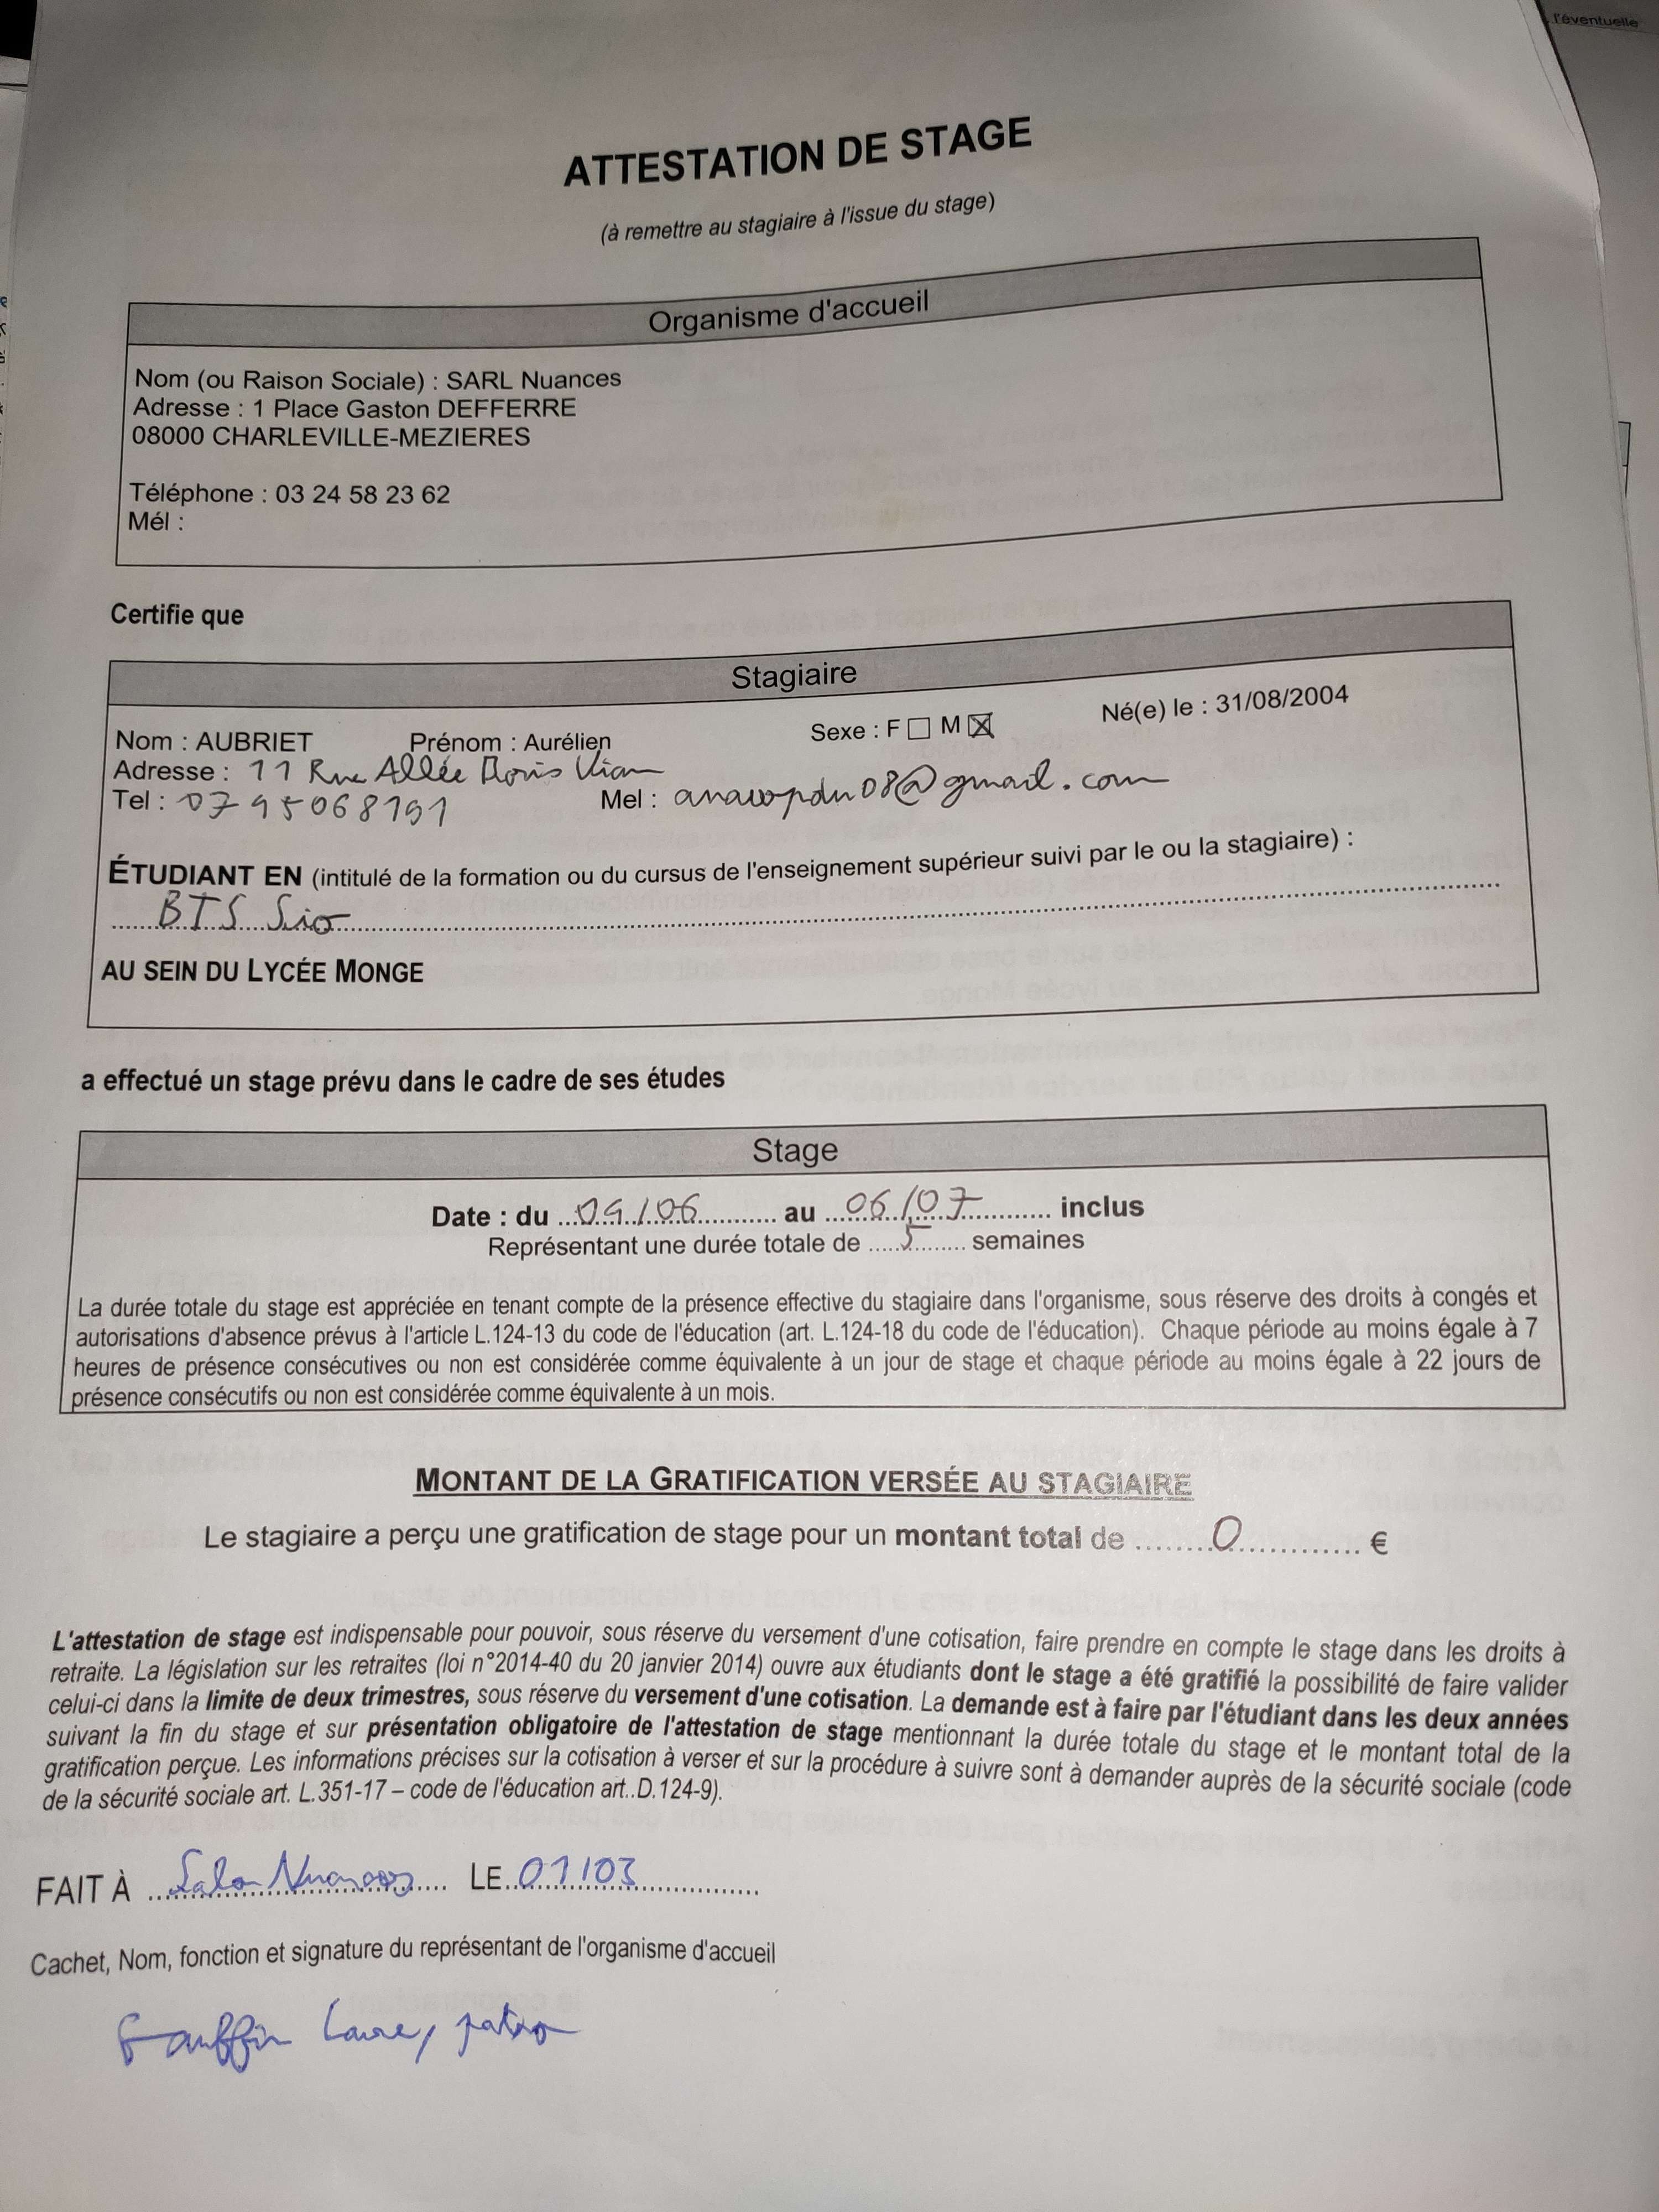 l'éventuelle
ATTESTATION DE STAGE
(à remettre au stagiaire à l'issue du stage)
Organisme d'accueil
Nom (ou Raison Sociale) : SARL Nuances
Adresse : 1 Place Gaston DEFFERRE
08000 CHARLEVILLE-MEZIERES
Téléphone : 03 24 58 23 62
Mél :
Certifie que
Stagiaire
Nom : AUBRIET Prénom : Aurélien Sexe : F ☐ M ☒ Né(e) le : 31/08/2004
Adresse : 11 Rue Allée Boris Vian
Tel : 0795068191 Mel : @gmail.com
ÉTUDIANT EN (intitulé de la formation ou du cursus de l'enseignement supérieur suivi par le ou la stagiaire) :
BTS Sio
AU SEIN DU LYCÉE MONGE
a effectué un stage prévu dans le cadre de ses études
Stage
Date : du 09/06 au 06/07 inclus
Représentant une durée totale de 5 semaines
La durée totale du stage est appréciée en tenant compte de la présence effective du stagiaire dans l'organisme, sous réserve des droits à congés et
autorisations d'absence prévus à l'article L.124-13 du code de l'éducation (art. L.124-18 du code de l'éducation). Chaque période au moins égale à 7
heures de présence consécutives ou non est considérée comme équivalente à un jour de stage et chaque période au moins égale à 22 jours de
présence consécutifs ou non est considérée comme équivalente à un mois.
MONTANT DE LA GRATIFICATION VERSÉE AU STAGIAIRE
Le stagiaire a perçu une gratification de stage pour un montant total de 0 €
L'attestation de stage est indispensable pour pouvoir, sous réserve du versement d'une cotisation, faire prendre en compte le stage dans les droits à
retraite. La législation sur les retraites (loi n°2014-40 du 20 janvier 2014) ouvre aux étudiants dont le stage a été gratifié la possibilité de faire valider
celui-ci dans la limite de deux trimestres, sous réserve du versement d'une cotisation. La demande est à faire par l'étudiant dans les deux années
suivant la fin du stage et sur présentation obligatoire de l'attestation de stage mentionnant la durée totale du stage et le montant total de la
gratification perçue. Les informations précises sur la cotisation à verser et sur la procédure à suivre sont à demander auprès de la sécurité sociale (code
de la sécurité sociale art. L.351-17 – code de l'éducation art..D.124-9).
FAIT À Salon Nuances LE 01/03
Cachet, Nom, fonction et signature du représentant de l'organisme d'accueil